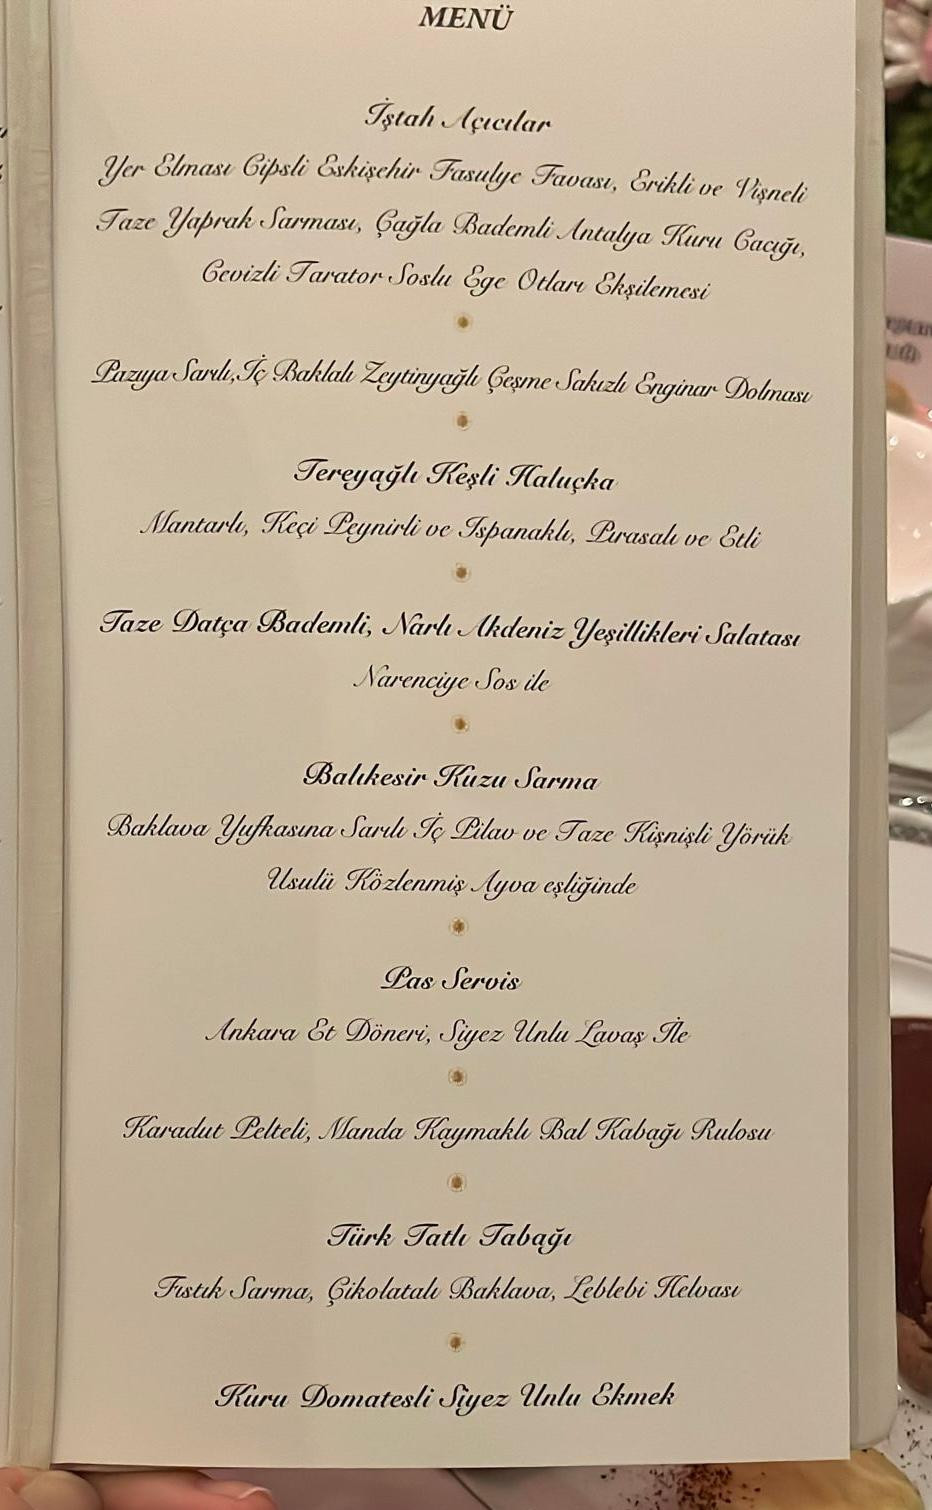 MENÜ
İştah Açıcılar
Yer Elması Cipsli Eskişehir Fasulye Favası, Erikli ve Vişneli
Taze Yaprak Sarması, Çağla Bademli Antalya Kuru Cacığı,
Cevizli Tarator Soslu Ege Otları Ekşilemesi
Pazıya Sarılı, İç Baklalı Zeytinyağlı Çeşme Sakızlı Enginar Dolması
Tereyağlı Keşli Haluçka
Mantarlı, Keçi Peynirli ve Ispanaklı, Pırasalı ve Etli
Taze Datça Bademli, Narlı Akdeniz Yeşillikleri Salatası
Narenciye Sos ile
Balıkesir Kuzu Sarma
Baklava Yufkasına Sarılı İç Pilav ve Taze Kişnişli Yörük
Usulü Közlenmiş Ayva eşliğinde
Pas Servis
Ankara Et Döneri, Siyez Unlu Lavaş İle
Karadut Pelteli, Manda Kaymaklı Bal Kabağı Rulosu
Türk Tatlı Tabağı
Fıstık Sarma, Çikolatalı Baklava, Leblebi Helvası
Kuru Domatesli Siyez Unlu Ekmek